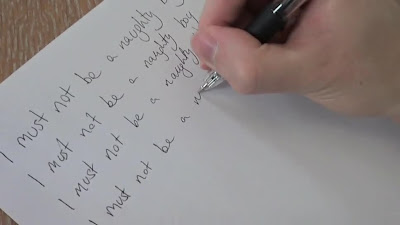 I must not be a naughty
I must not be a naughty boy
I must not be a naughty
I must not be a